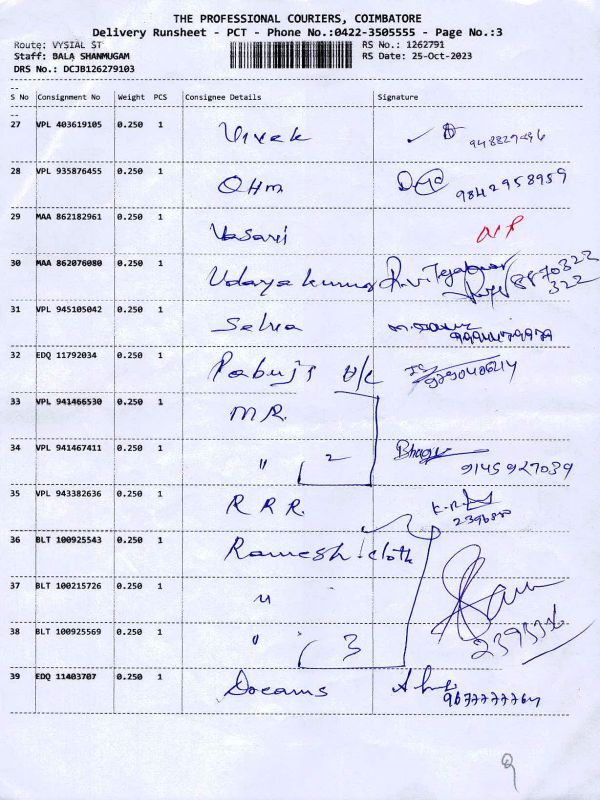 THE PROFESSIONAL COURIERS, COIMBATORE
Delivery Runsheet - PCT - Phone No.:0422-3505555 - Page No.:3
Route: VYSIAL ST RS No.: 1262791
Staff: BALA SHANMUGAM RS Date: 25-Oct-2023
DRS No.: DCJB126279103
--
S No Consignment No Weight PCS Consignee Details Signature
--
27 VPL 403619105 0.250 1 Vivek
28 VPL 935876455 0.250 1 OHM 9842958959
29 MAA 862182961 0.250 1
30 MAA 862076080 0.250 1 Udaya kumar 8870322
322
31 VPL 945105042 0.250 1
32 EDQ 11792034 0.250 1 Pabuji
33 VPL 941466530 0.250 1 M.R.
34 VPL 941467411 0.250 1 " 2 9145927039
35 VPL 943382636 0.250 1 R R R. K.R
36 BLT 100925543 0.250 1 Ramesh cloth
37 BLT 100215726 0.250 1 "
38 BLT 100925569 0.250 1 " 3
39 EDQ 11403707 0.250 1 Dreams